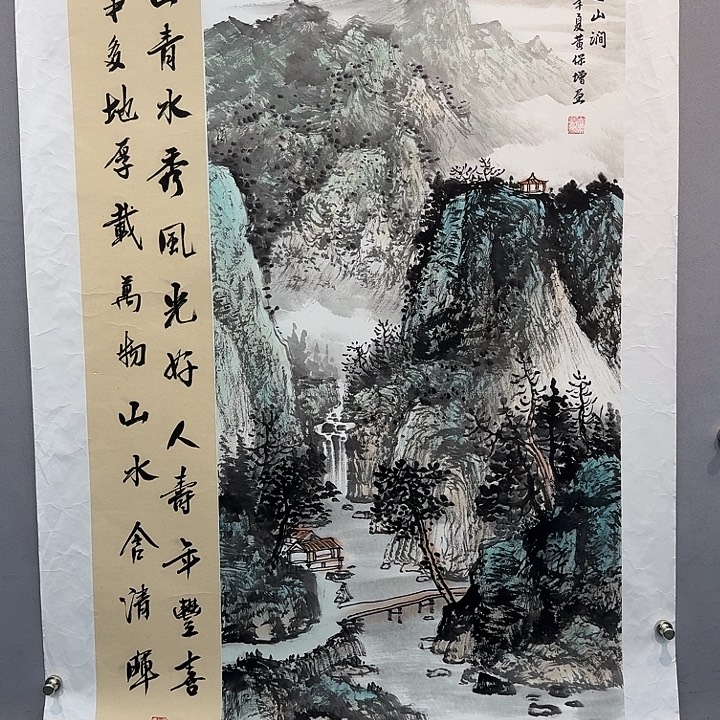 山澗
年夏黄保增画
山青水秀風光好人壽年豐喜
事多地厚載萬物山水含清暉